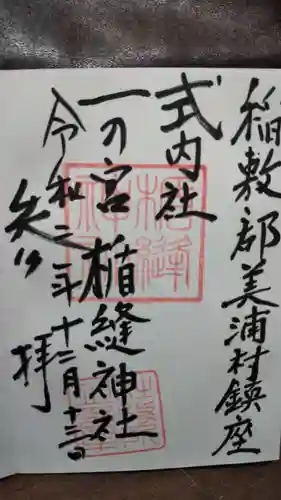 稲敷郡美浦村鎮座
式内社
一の宮楯縫神社
令和二年十二月十三日
拝